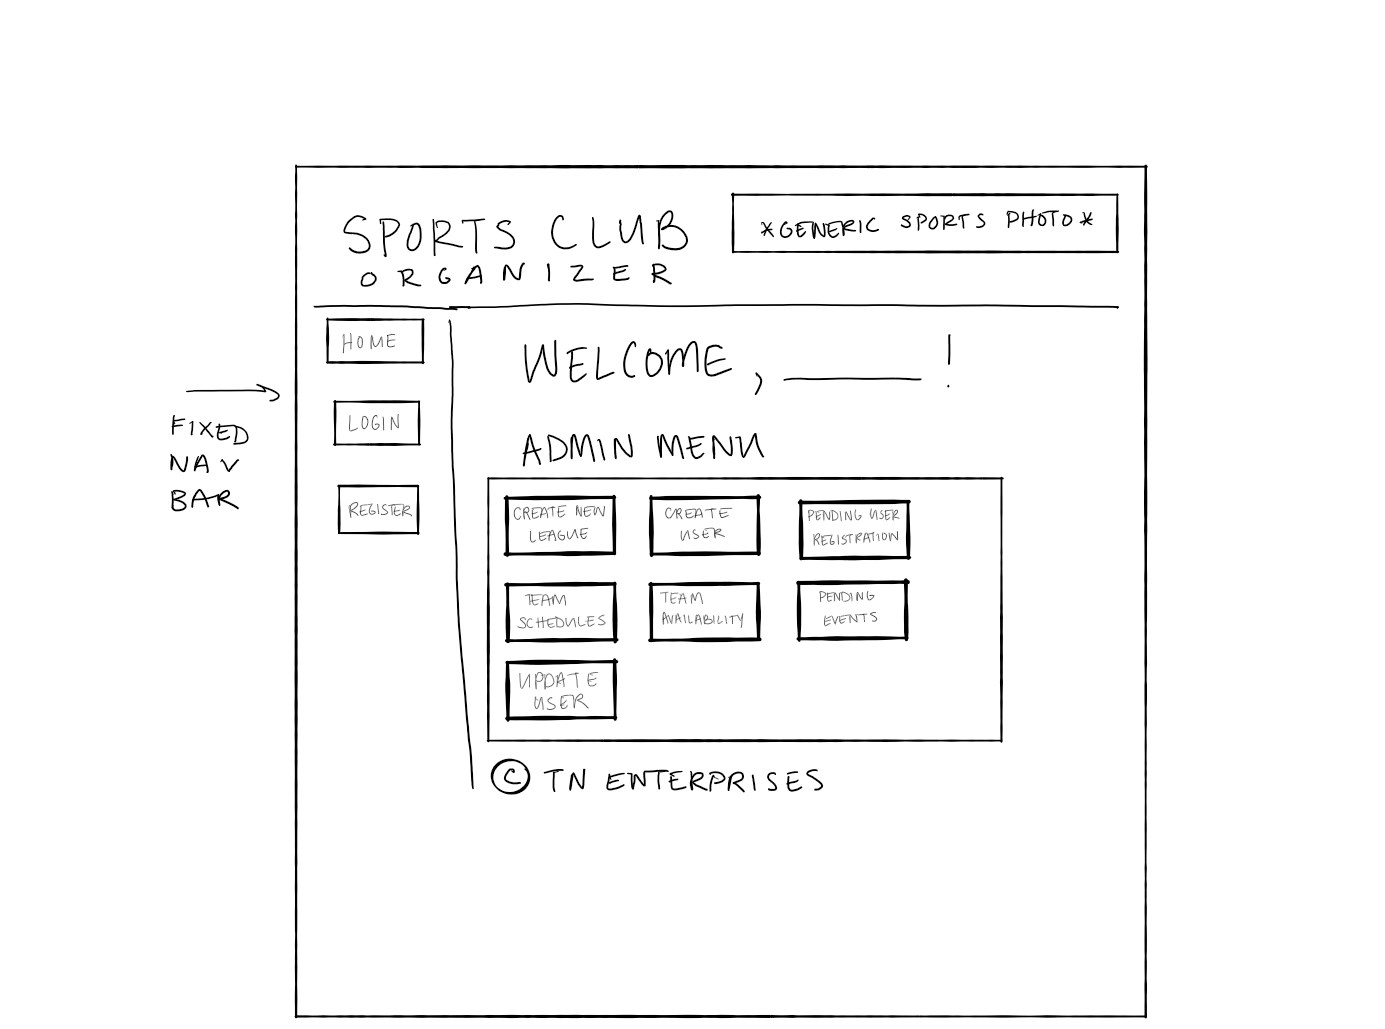 SPORTS CLUB
ORGANIZER
*GENERIC SPORTS PHOTO*
HOME
LOGIN
REGISTER
FIXED
NAV
BAR
WELCOME, ______ !
ADMIN MENU
CREATE NEW
LEAGUE
CREATE
USER
PENDING USER
REGISTRATION
TEAM
SCHEDULES
TEAM
AVAILABILITY
PENDING
EVENTS
UPDATE
USER
© TN ENTERPRISES